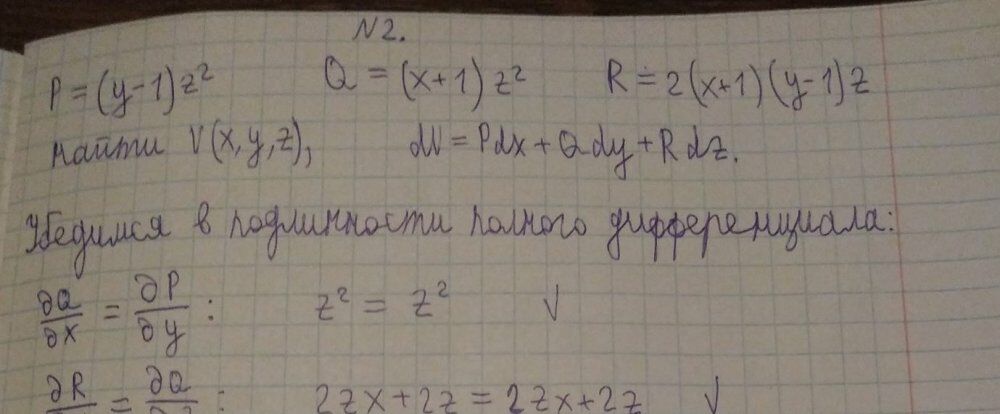 N2.
P = (y-1)z² Q = (x+1)z² R = 2(x+1)(y-1)z
найти V(x,y,z), dV = Pdx + Qdy + Rdz.
Убедимся в подлинности полного дифференциала:
∂Q/∂x = ∂P/∂y : z² = z² √
∂R = ∂Q : 2zx+2z = 2zx+2z √